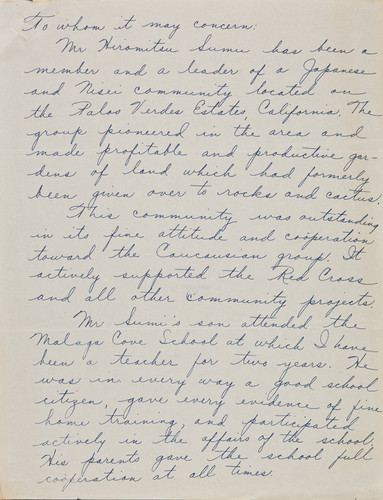 To whom it may concern:
Mr Hiromitsu Sumii has been a
member and a leader of a Japanese
and Nisei community located on
the Palos Verdes Estates, California. The
group pioneered in the area and
made profitable and productive gar-
dens of land which had formerly
been given over to rocks and cactus.
This community was outstanding
in its fine attitude and coöperation
toward the Caucausian group. It
actively supported the Red Cross
and all other community projects.
Mr Sumii's son attended the
Malaga Cove School at which I have
been a teacher for two years. He
was in every way a good school
citizen, gave every evidence of fine
home training, and participated
actively in the affairs of the school.
His parents gave the school full
coöperation at all times.